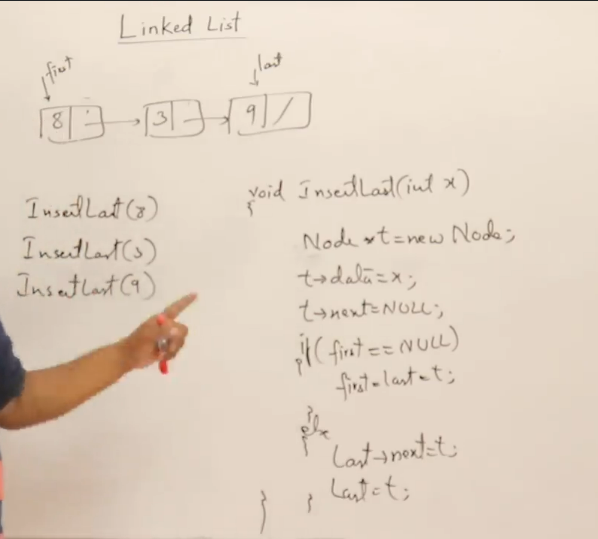 Linked List
first last
8 3 9 /
InsertLast(8)
InsertLast(3)
InsertLast(9)
void InsertLast(int x)
{
Node *t=new Node;
t→data=x;
t→next=NULL;
if(first==NULL)
{
first=last=t;
}
else
{
last→next=t;
last=t;
}
}